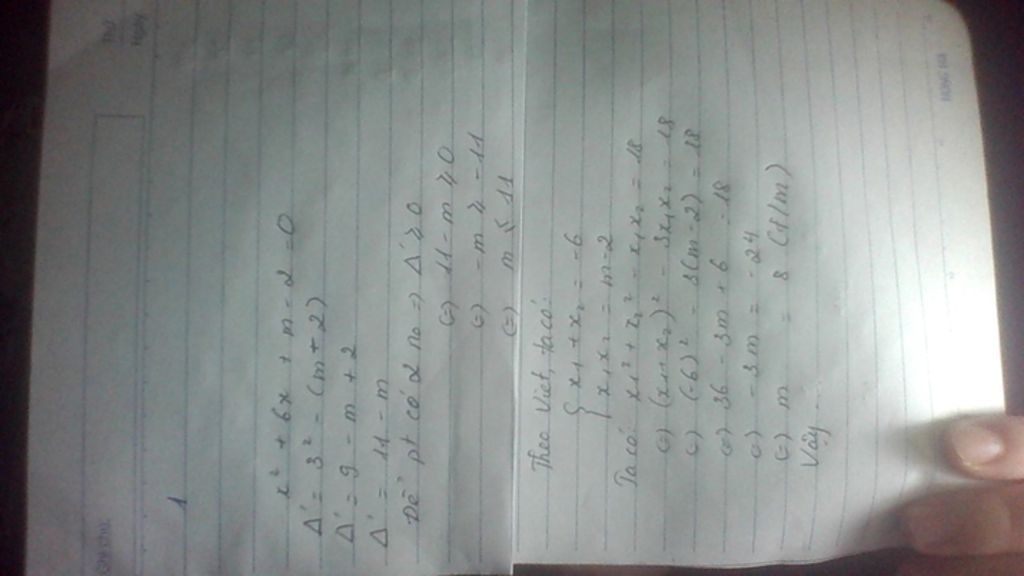 Thứ
Ngày
1
x² + 6x + m - 2 = 0
Δ' = 3² - (m + 2)
Δ' = 9 - m + 2
Δ' = 11 - m
Để pt có 2 no => Δ' ≥ 0
(=) 11 - m ≥ 0
(=) - m ≥ -11
(=) m ≤ 11
Theo Viet, ta có:
{ x1 + x2 = -6
x1x2 = m-2
Ta có: x1² + x2² - x1x2 = 18
(=) (x1+x2)² - 3x1x2 = 18
(=) (-6)² - 3(m-2) = 18
(=) 36 - 3m + 6 = 18
(=) -3m = -24
(=) m = 8 (t/m)
Vậy ...
HONG HA